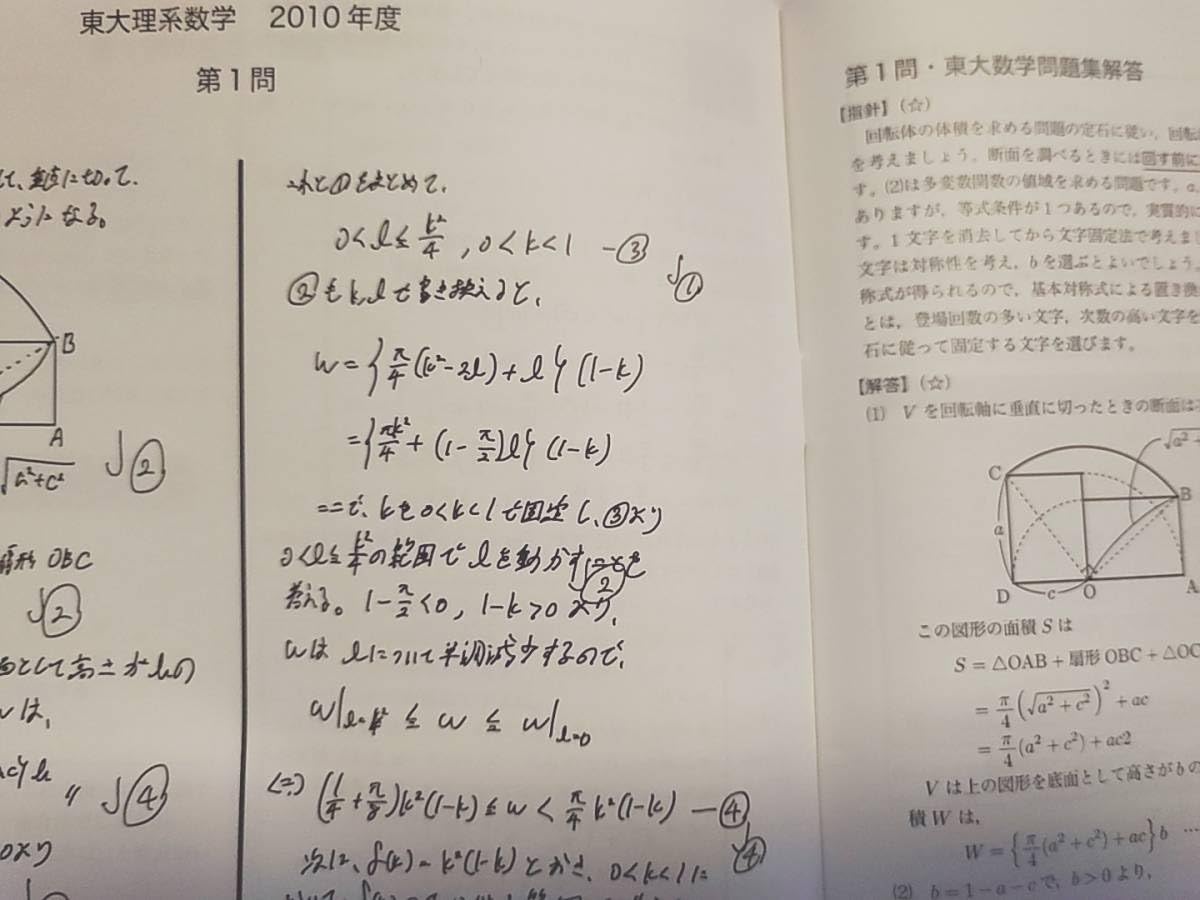 東大理系数学 2010年度
第1問
て、垂直に切って、
ようになる。
B
A
√a²+c² √②
扇形 OBC
√②
面として高さがbの
Wは、
ac}b 〃 √④
①より
これと①をまとめて、
0<l≦k²/4 , 0<k<1 —③
√①
②もk,lで書き換えると、
W={π/4(k²-2l)+l}(1-k)
={πk²/4+(1-π/2)l}(1-k)
ここで、kを0<k<1で固定し、③より
0<l≦k²/4の範囲でlを動かすことを
√②
考える。1-π/2<0, 1-k>0より、
Wはlについて単調減少するので、
W|l=k²/4 ≦ W ≦ W|l=0
(1/4+π/8)k²(1-k)≦W<π/4k²(1-k) —④
√④
次に、f(k)=k²(1-k)とおき、0<k<1に
第1問・東大数学問題集解答
【指針】(☆)
回転体の体積を求める問題の定石に従い、回転
を考えましょう。断面を調べるときには回す前に
す。(2)は多変数関数の値域を求める問題です。a,
ありますが、等式条件が1つあるので、実質的に
す。1文字を消去してから文字固定法で考えまし
文字は対称性を考え、bを選ぶとよいでしょう。
称式が得られるので、基本対称式による置き換
とは、登場回数の多い文字、次数の高い文字を
石に従って固定する文字を選びます。
【解答】(☆)
(1) Vを回転軸に垂直に切ったときの断面は
√a²+
C
B
a
D c O A
この図形の面積Sは
S=△OAB+扇形OBC+△OC
=π/4(√a²+c²)²+ac
=π/4(a²+c²)+ac2
Vは上の図形を底面として高さがbの
積Wは、
W={π/4(a²+c²)+ac}b …
(2) b=1-a-cで、b>0より、